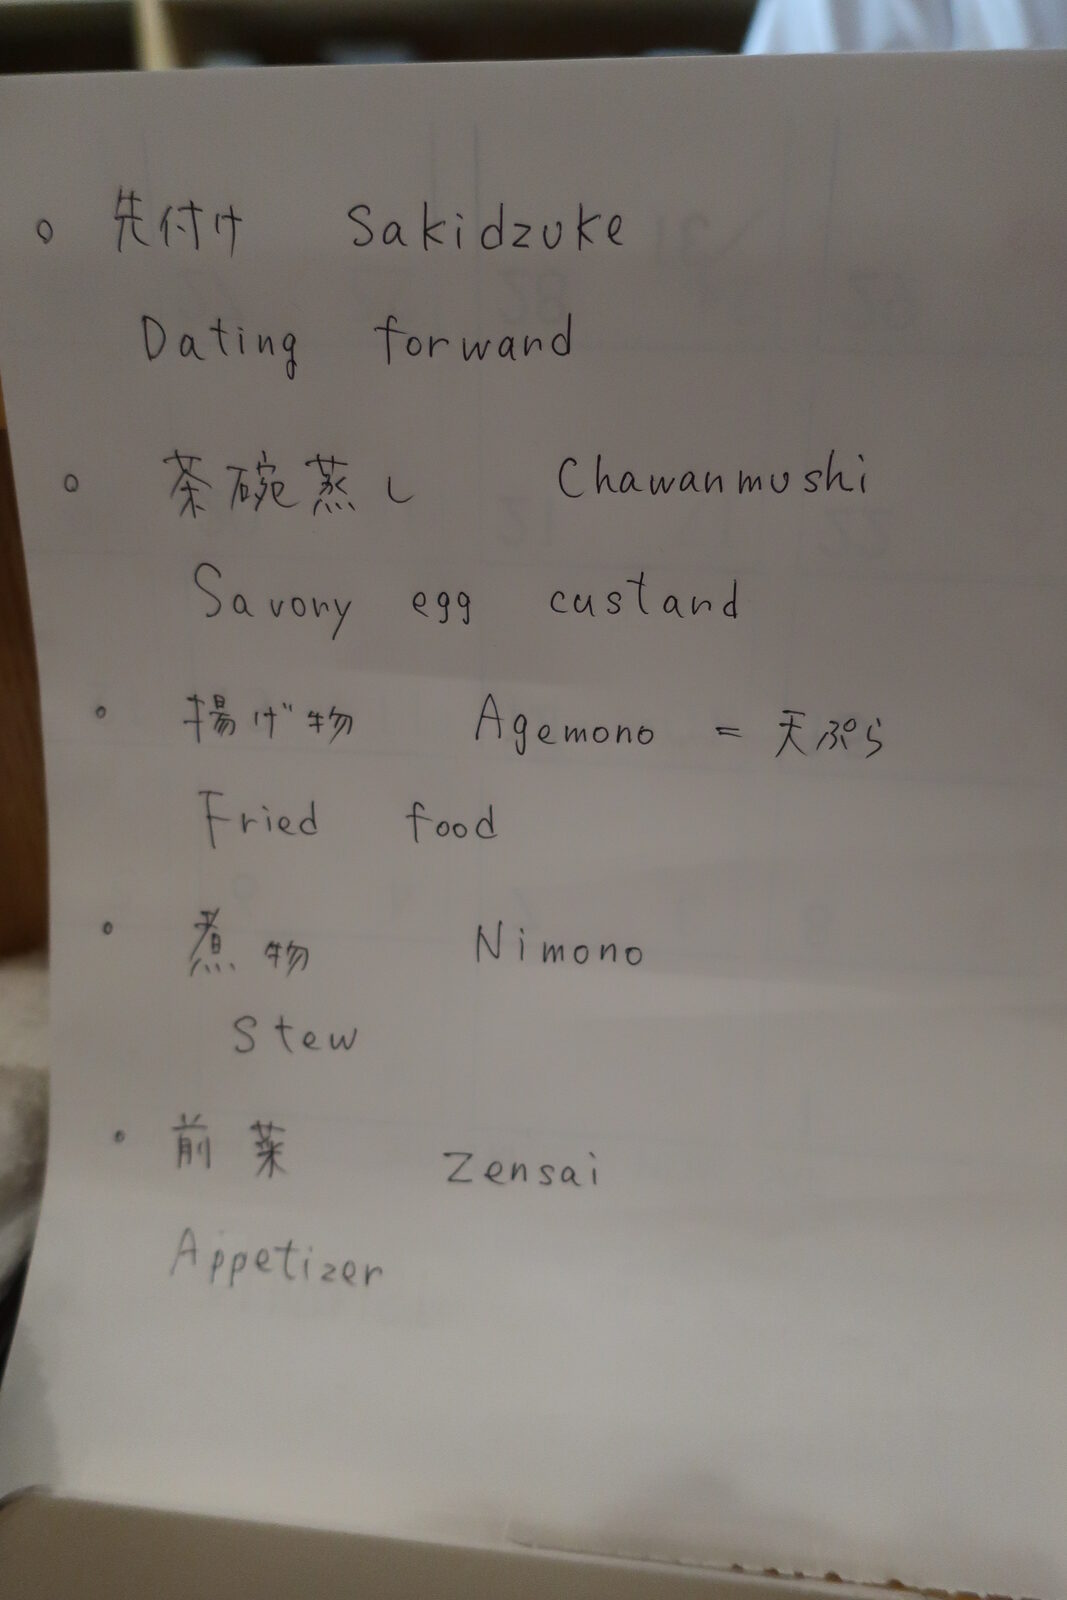 。先付け Sakidzuke
Dating forward
。茶碗蒸し Chawanmushi
Savory egg custard
。揚げ物 Agemono = 天ぷら
Fried food
。煮物 Nimono
Stew
。前菜 Zensai
Appetizer